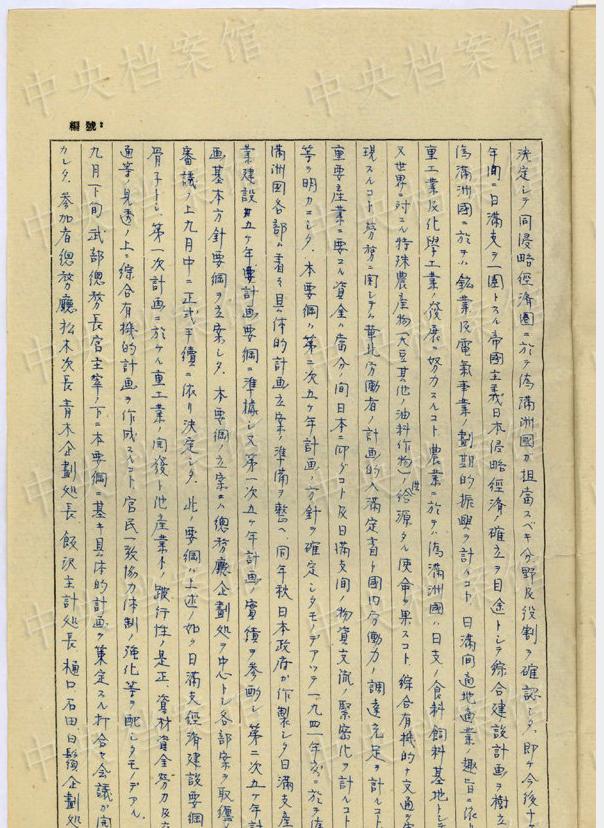 編號:
決定シテ同侵略経済圏ニ於テ偽満洲国ガ担当スベキ分野及役割ヲ確認シタ、即チ今後十
年間ニ日満支ヲ一圏トスル帝国主義日本侵略経済ノ確立ヲ目途トシテ綜合建設計画ヲ樹立
偽満洲国ニ於テハ鉱業及電気事業ノ劃期的振興ヲ計ルコト、日満間適地適業ノ趣旨ニ依リ
重工業及化學工業ノ發展ニ努力スルコト農業ニ於テハ偽満洲国ハ日支ノ食料飼料基地トシテ
又世界ニ対スル特殊農産物(大豆其他ノ油料作物)ノ供給源タル使命ヲ果スコト、綜合有機的ナ交通
現スルコト労務ニ関シテハ華北労働者ノ計画的入満定着ト國内労働力ノ調達充足ヲ計ルコト
重要産業ニ要スル資金ハ当分ノ間日本ニ仰グコト及日満支間ノ物資交流ノ緊密化ヲ計ルコト
等ヲ明カニシタ、本要綱ハ第二次五ヶ年計画ノ方針ヲ確定シタモノデアツテ一九四一年
満洲国各部ハ着々具体的計画立案ノ準備ヲ整ヘ同年秋日本政府ガ作製シタ日満支産
業建設五ヶ年計画要綱ニ準據シ又第一次五ヶ年計画ノ實績ヲ参酌シ第二次五ヶ年計
画基本方針要綱ヲ立案シタ、本要綱ノ立案ニハ總務廳企劃処ヲ中心トシ各部案ヲ取纏
審議ノ上九月中ニ正式手續ニ依リ決定シタ、此ノ要綱ハ上述ノ如ク日満支経済建設要綱
骨子トシ第一次計画ニ於ケル重工業ノ開發ト他産業トノ跛行性ノ是正、資材資金勞力及
通等ノ見透ノ上ニ綜合有機的計画ヲ作成スルコト、官民一致協力体制ノ強化等ヲ配シタモノデアル、
九月下旬武部總務長官主宰ノ下ニ本要綱ニ基キ具体的計画ヲ策定スル打合セ会議ガ開
カレタ、参加者總務廳松木次長青木企劃処長飯沢主計処長樋口石田日鬚企劃処
中央档案馆